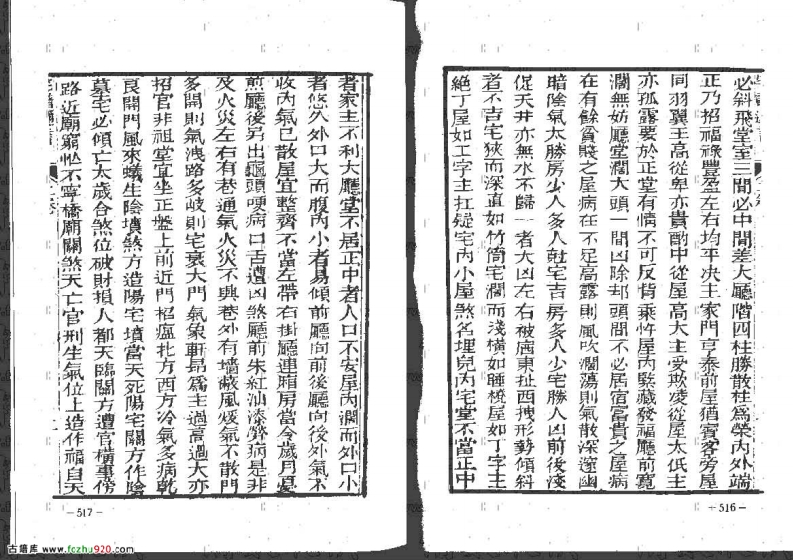 必斜飛堂至三間必中間差大廳階四柱勝散柱為榮內外端
正乃招福祿豐盈左右均平決主家門亨泰前屋猶賓客旁屋
同羽翼王高從卑亦貴酌中從屋高大主受欺凌從屋太低主
亦孤露要於正堂有情不可反背乘忤屋內緊藏發福廳前寬
濶無妨廳堂濶大頭一間凶除却頭間不必居宿富貴之屋病
在有餘貧賤之屋病在不足高露則風吹濶蕩則氣散深邃幽
暗陰氣太勝房少人多人尅宅吉房多人少宅勝人凶前後淺
促天井亦無水不歸一者大凶左右被廂東扯西拽形勢傾斜
者不吉宅狹而深直如竹筒宅濶而淺橫如腫櫈屋如丁字主
絶丁屋如工字主扛疑宅內小屋煞名埋兒內宅堂不當正中
－516－
者家主不利大廳堂不居正中者人口不安屋內濶而外口小
者悠久外口大而腹內小者易傾前廳向前後廳向後外氣不
收內氣已散屋宜整齊不當左帶右掛廳連廂房當令歲月憂
煎廳後另出龜頭哽病口舌遭凶煞廳前朱紅油漆勞病是非
及火災左右有巷通氣火災不興巷外有墻藏風煖氣不散門
多開則氣洩路多岐則宅衰大門氣象軒昂為主過高過大亦
招官非祖堂宜坐正盤上前近門招瘟扯方西方冷氣多病乾
艮開門風來蟻生陰墳煞方造陽宅墳當天死陽宅關方作陰
墓宅必傾亡太歲合煞位破財損人都天臨關方遭官橫事傍
路近廟窮忙不寧橋廟關煞天亡官刑生氣位上造作福自天
－517－
古籍库 www.fczhu920.com